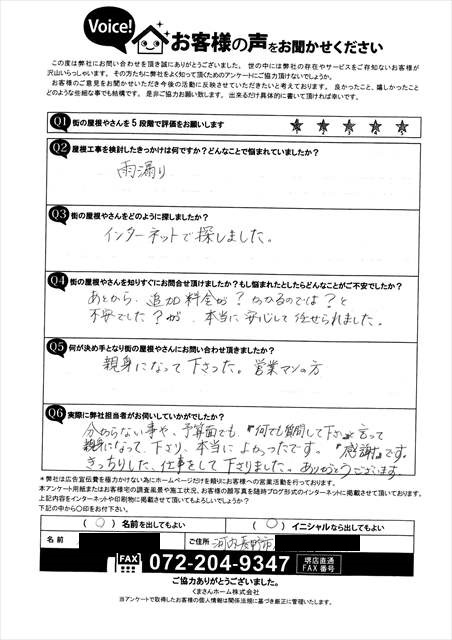 Voice!
お客様の声をお聞かせください
この度は弊社にお問い合わせを頂き誠にありがとうございます。 世の中には弊社の存在やサービスをご存知ないお客様が
沢山いらっしゃいます。 その方たちに弊社をよく知って頂くためのアンケートにご協力頂けないでしょうか。
お客様のご意見をお聞かせいただき今後の活動に反映させていただきたいと考えております。 良かったこと、嬉しかったこと
どのような些細な事でも結構です。 是非ご協力お願い致します。 出来るだけ具体的に書いて頂ければ幸いです。
Q1 街の屋根やさんを5段階で評価をお願いします
1 2 3 4 5
Q2 屋根工事を検討したきっかけは何ですか?どんなことで悩まれていましたか?
雨漏り
Q3 街の屋根やさんをどのように探しましたか?
インターネットで探しました。
Q4 街の屋根やさんを知りすぐにお問合せ頂けましたか?もし悩まれたとしたらどんなことがご不安でしたか?
あとから、追加料金が?かかるのでは?と
不安でした?が、本当に安心して任せられました。
Q5 何が決め手となり街の屋根やさんにお問い合わせ頂きましたか?
親身になって下さった。営業マンの方
Q6 実際に弊社担当者がお伺いしていかがでしたか?
分からない事や、予算面でも、『何でも質問して下さい』と言って
親身になって、下さり、本当によかったです。『感謝』です。
きっちりした、仕事をして下さりました。ありがとうございます
*弊社は広告宣伝費を極力かけない為にホームページだけを頼りにお客様への営業活動を行っております。
本アンケート用紙またはお客様宅の調査風景や施工状況、お客様の顔写真を随時ブログ形式のインターネットに掲載させて頂いております。
上記内容をインターネットや印刷物に掲載させて頂いてもよろしいでしょうか?
下記の中から〇印をお付下さい。
( 〇 ) 名前を出してもよい
( 〇 ) イニシャルなら出してもよい
名 前
ご住所 河内長野市
FAX 072-204-9347 堺店直通 FAX番号
ご協力ありがとうございました。
くまさんホーム株式会社
当アンケートで取得したお客様の個人情報は関係法規に基づき厳正に管理いたします。